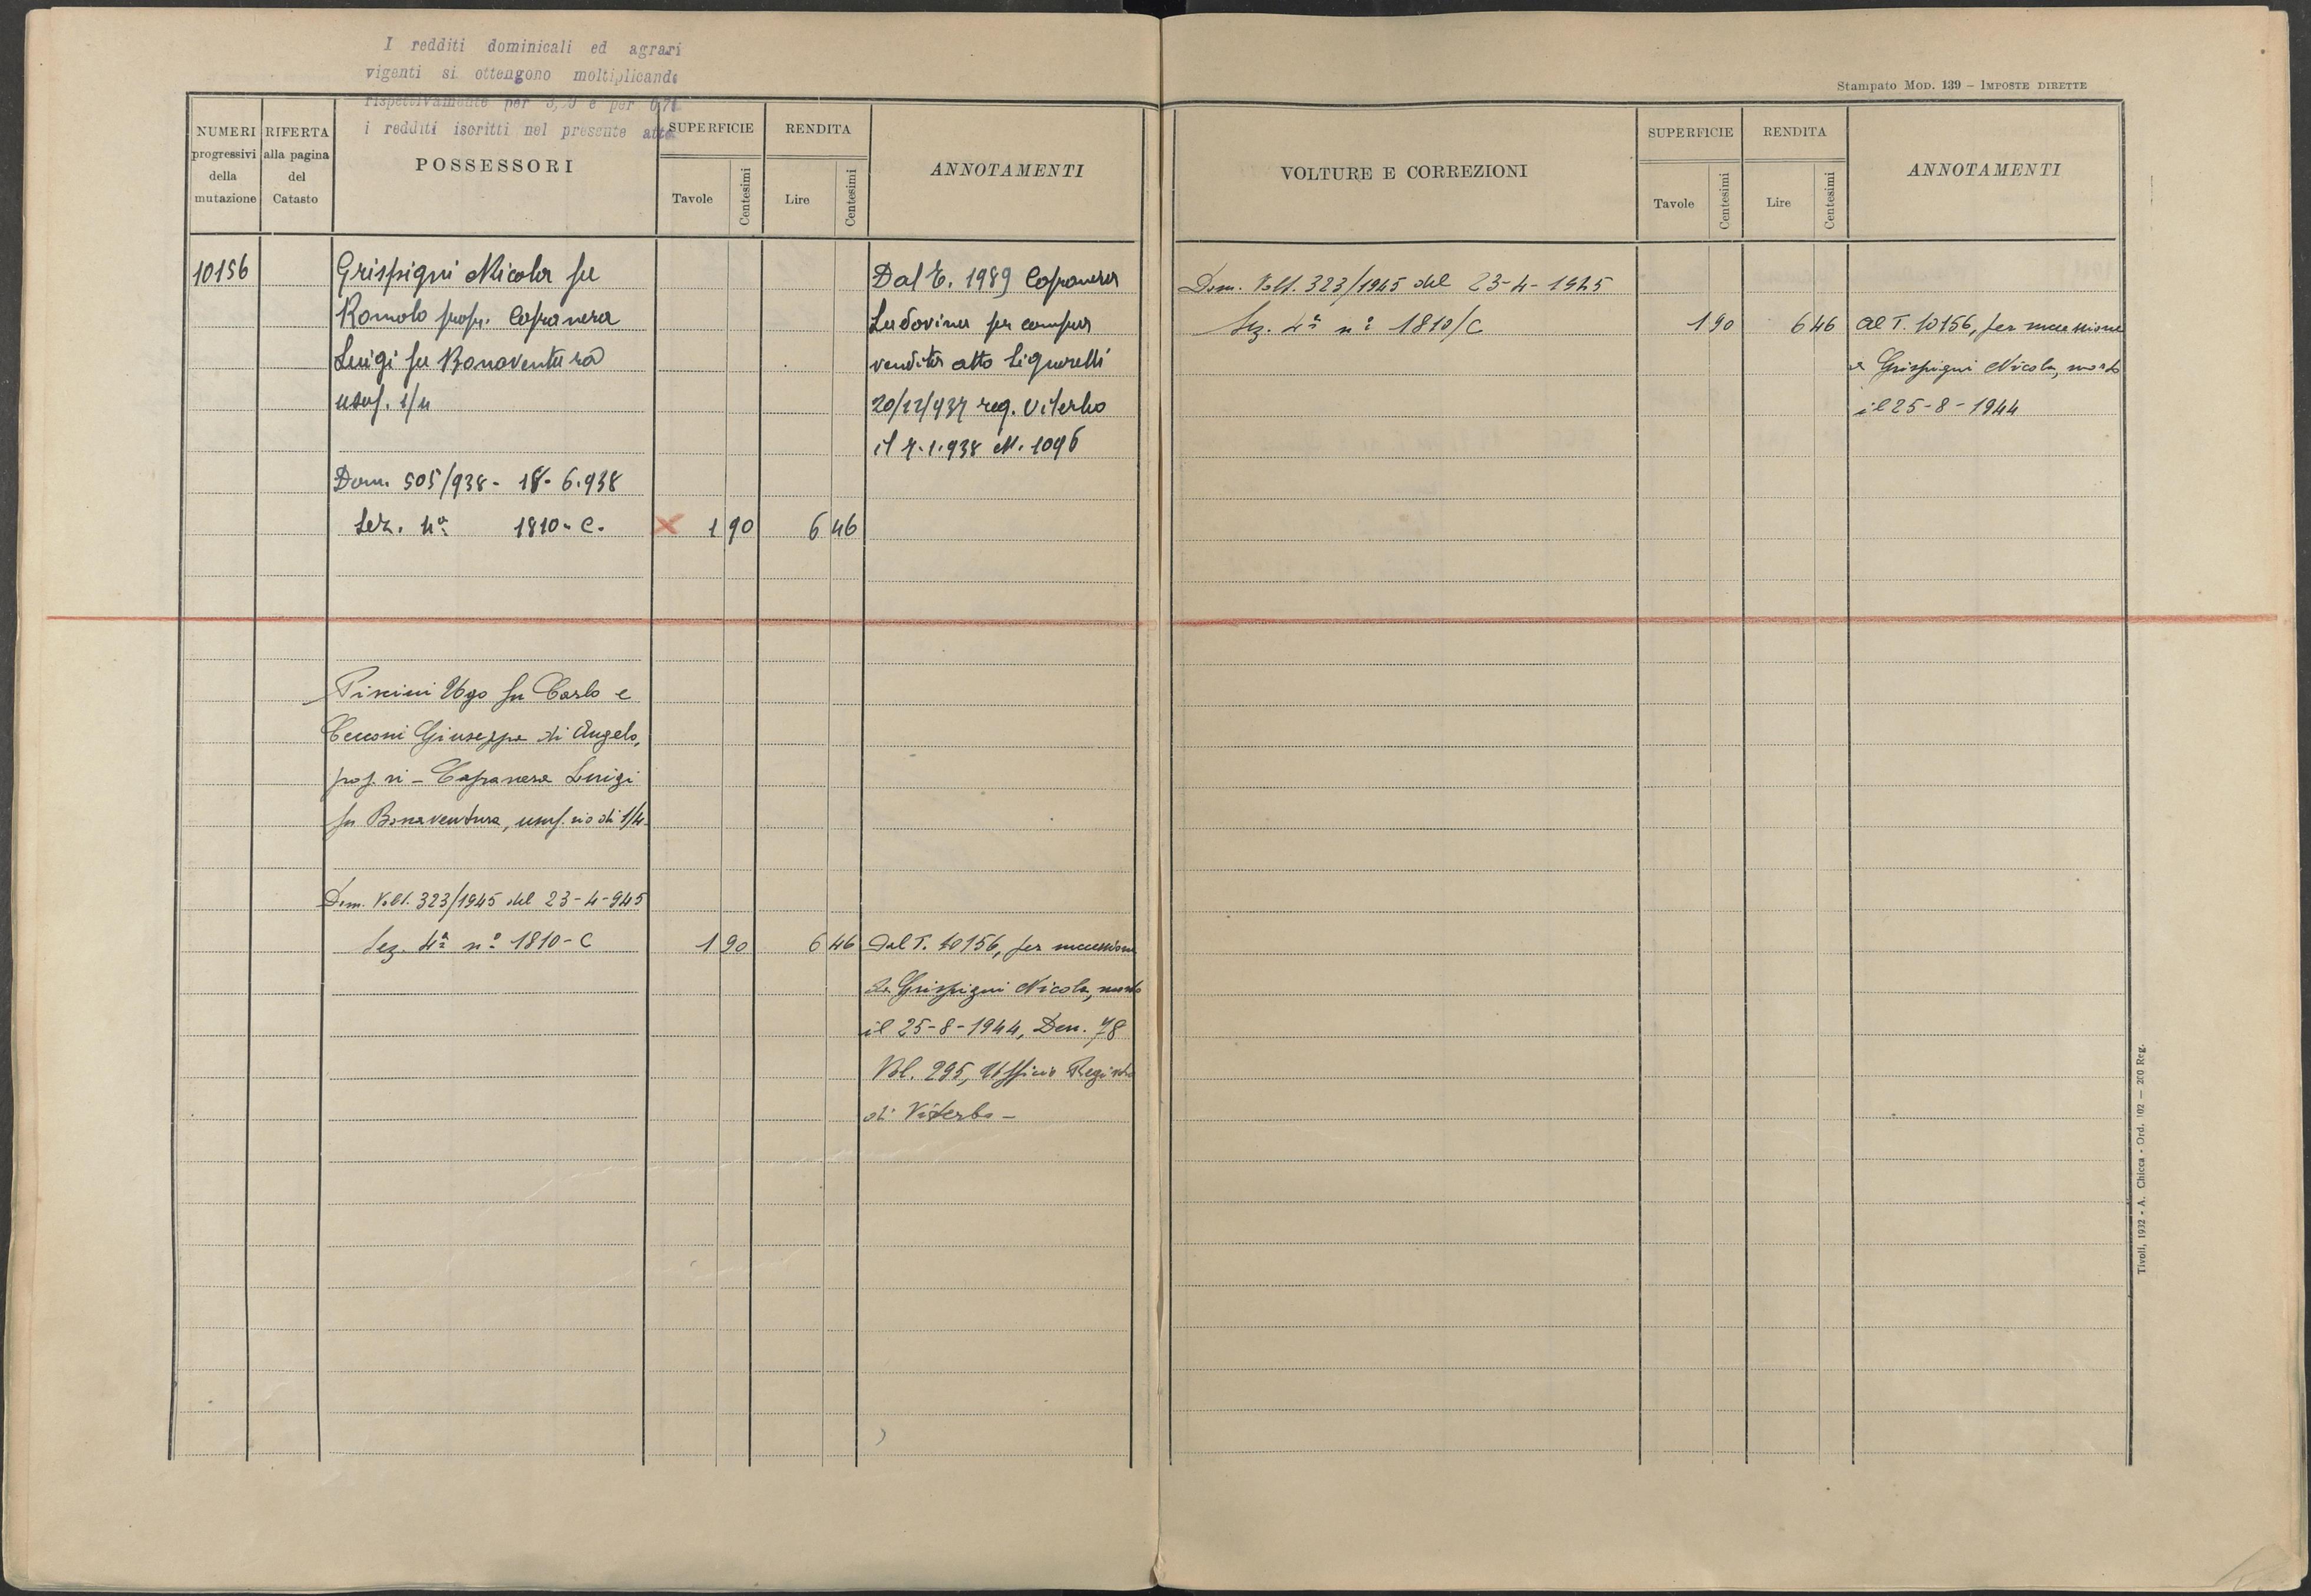 I redditi dominicali ed agrari
vigenti si ottengono moltiplicando
rispettivamente per e per
i redditi iscritti nel presente atto
Stampato Mod. 139 – Imposte dirette
NUMERI progressivi della mutazione
RIFERTA alla pagina del Catasto
POSSESSORI
SUPERFICIE
Tavole
Centesimi
RENDITA
Lire
Centesimi
ANNOTAMENTI
VOLTURE E CORREZIONI
SUPERFICIE
Tavole
Centesimi
RENDITA
Lire
Centesimi
ANNOTAMENTI
10156
Grispigni Nicola fu
Romolo propr. Capranera
Luigi fu Bonaventura
usuf. 1/4
Dom. 505/938 - 18-6.938
Sez. 4ª 1810-C.
1 90
6 46
Dal T. 1989 Capranera
Ludovina per compra
vendita atto Liguorelli
20/12/937 reg. Viterbo
il 7.1.938 N. 1096
Dom. Volt. 323/1945 del 23-4-1945
Sez. 4ª nº 1810/C
1 90
6 46
Al T. 10156, per successione
a Grispigni Nicola, morto
il 25-8-1944
Piscini Ugo fu Carlo e
Cecconi Giuseppe di Angelo,
prop.ri - Capranera Luigi
fu Bonaventura, usuf.rio di 1/4.
Dom. Volt. 323/1945 del 23-4-945
Sez. 4ª nº 1810-C
1 90
6 46
Dal T. 10156, per successione
a Grispigni Nicola, morto
il 25-8-1944, Den. 78
Vol. 295, Ufficio Registro
di Viterbo -
Tivoli, 1932 - A. Chicca - Ord. 102 — 200 Reg.